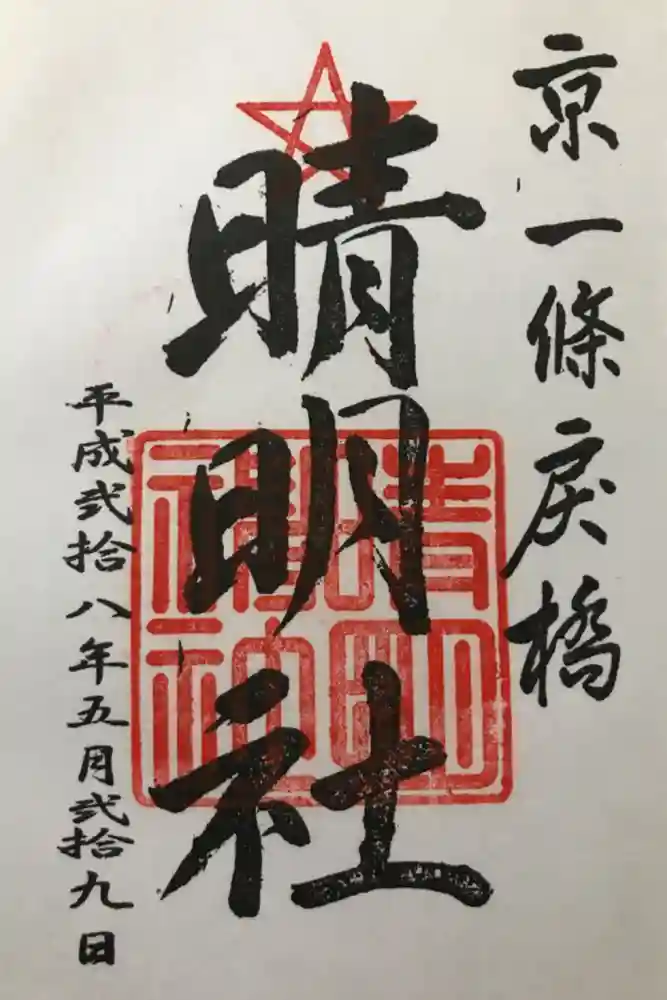 京一條戻橋
晴明社
平成弐拾八年五月弐拾九日